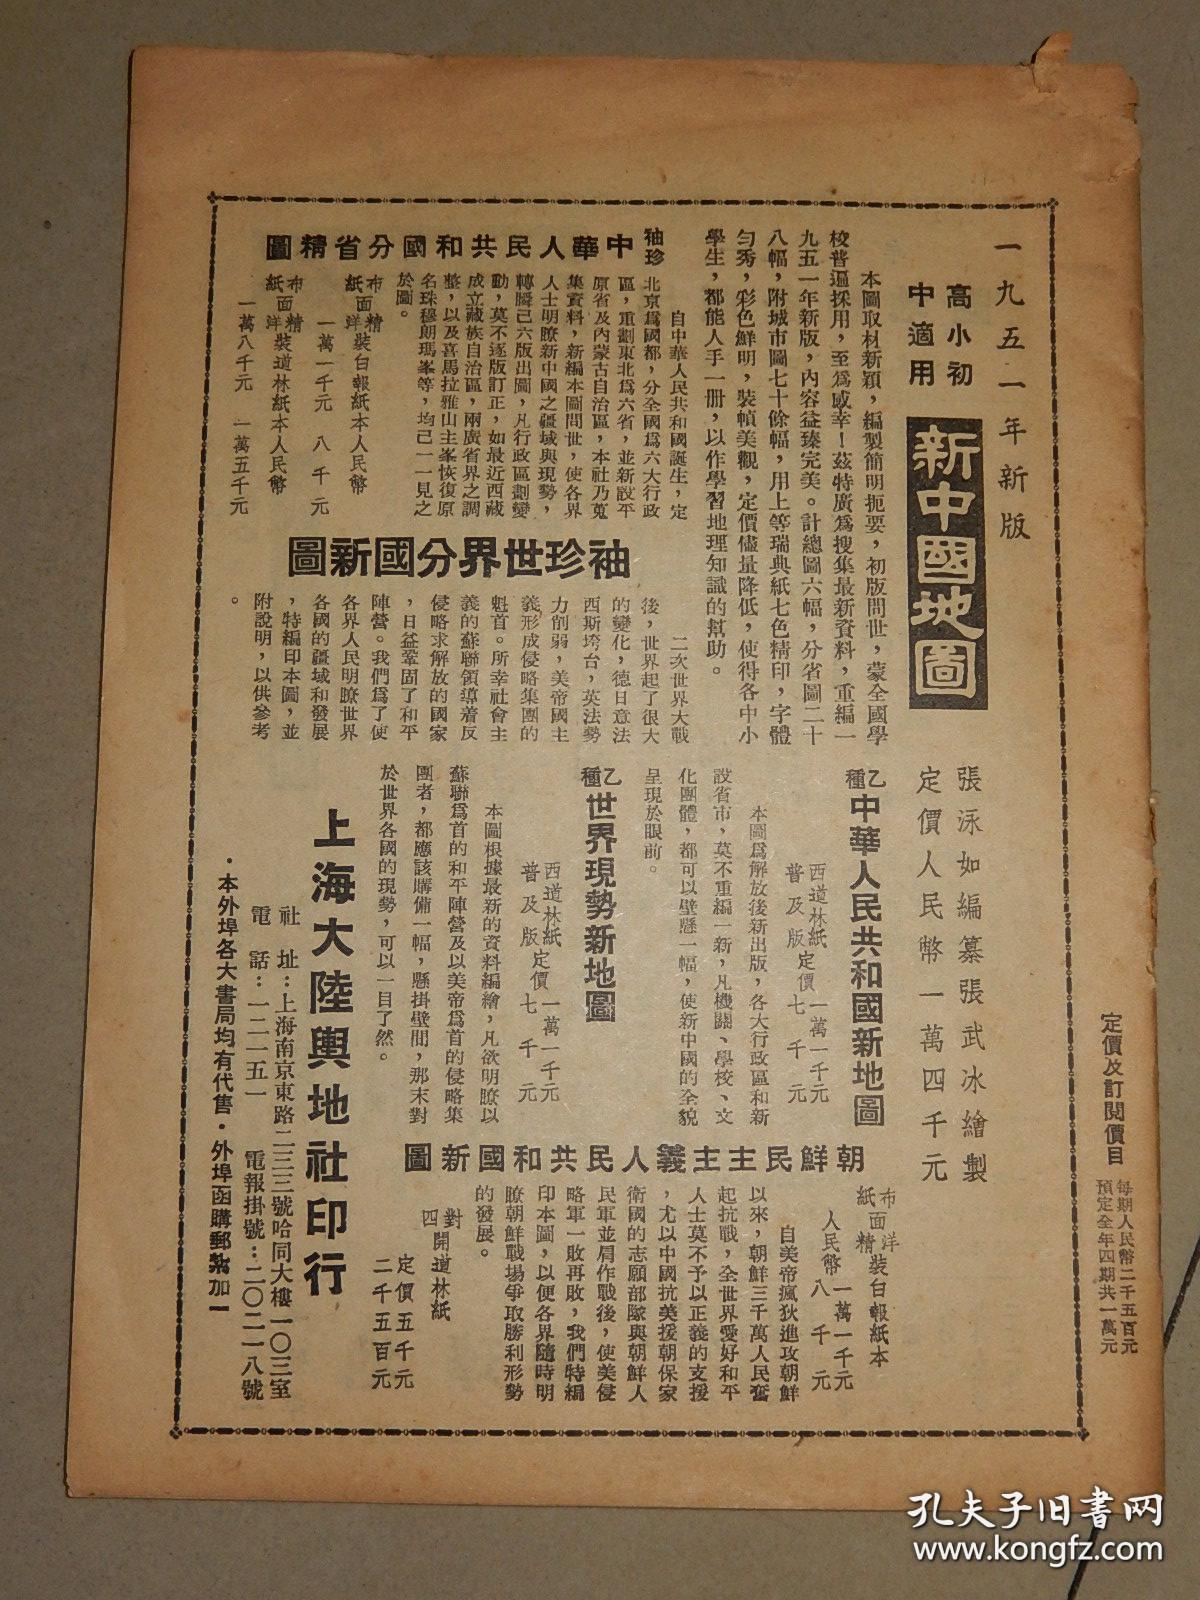 定價及訂閱價目
每期人民幣二千五百元
預定全年四期共一萬元
一九五一年新版
高小初
中適用
新中國地圖
張泳如編纂張武冰繪製
定價人民幣一萬四千元
本圖取材新穎，編製簡明扼要，初版問世，蒙全國學
校普遍採用，至爲感幸！茲特廣爲搜集最新資料，重編一
九五一年新版，內容益臻完美。計總圖六幅，分省圖二十
八幅，附城市圖七十餘幅，用上等瑞典紙七色精印，字體
勻秀，彩色鮮明，裝幀美觀，定價儘量降低，使得各中小
學生，都能人手一册，以作學習地理知識的幫助。
袖珍
中華人民共和國分省精圖
自中華人民共和國誕生，定
北京爲國都，分全國爲六大行政
區，重劃東北爲六省，並新設平
原省及內蒙古自治區，本社乃蒐
集資料，新編本圖問世，使各界
人士明瞭新中國之疆域與現勢，
轉瞬已六版出圖，凡行政區劃變
動，莫不逐版訂正，如最近西藏
成立藏族自治區，兩廣省界之調
整，以及喜馬拉雅山主峯恢復原
名珠穆朗瑪峯等，均已一一見之
於圖。
布面精裝白報紙本人民幣
紙洋
一萬一千元 八千元
布面精裝道林紙本人民幣
紙洋
一萬八千元 一萬五千元
袖珍世界分國新圖
二次世界大戰
後，世界起了很大
的變化，德日意法
西斯垮台，英法勢
力削弱，美帝國主
義形成侵略集團的
魁首。所幸社會主
義的蘇聯領導着反
侵略求解放的國家
，日益鞏固了和平
陣營。我們爲了使
各界人民明瞭世界
各國的疆域和發展
，特編印本圖，並
附說明，以供參考
。
布面洋裝白報紙本
紙精
人民幣一萬一千元
八千元
乙種
中華人民共和國新地圖
西道林紙 一萬一千元
普及版定價七千元
本圖爲解放後新出版，各大行政區和新
設省市，莫不重編一新，凡機關、學校、文
化團體，都可以壁懸一幅，使新中國的全貌
呈現於眼前。
乙種
世界現勢新地圖
西道林紙 一萬一千元
普及版定價七千元
本圖根據最新的資料編繪，凡欲明瞭以
蘇聯爲首的和平陣營及以美帝爲首的侵略集
團者，都應該購備一幅，懸掛壁間，那末對
於世界各國的現勢，可以一目了然。
朝鮮民主主義人民共和國新圖
自美帝瘋狄進攻朝鮮
以來，朝鮮三千萬人民奮
起抗戰，全世界愛好和平
人士莫不予以正義的支援
，尤以中國抗美援朝保家
衛國的志願部隊與朝鮮人
民軍並肩作戰後，使美侵
略軍一敗再敗，我們特編
印本圖，以便各界隨時明
瞭朝鮮戰場爭取勝利形勢
的發展。
對開道林紙 定價五千元
四 二千五百元
上海大陸輿地社印行
社 址：上海南京東路二三三號哈同大樓一〇三室
電 話：一二一五一 電報掛號：二〇二一八號
・本外埠各大書局均有代售・外埠函購郵紮加一
孔夫子旧書网
www.kongfz.com